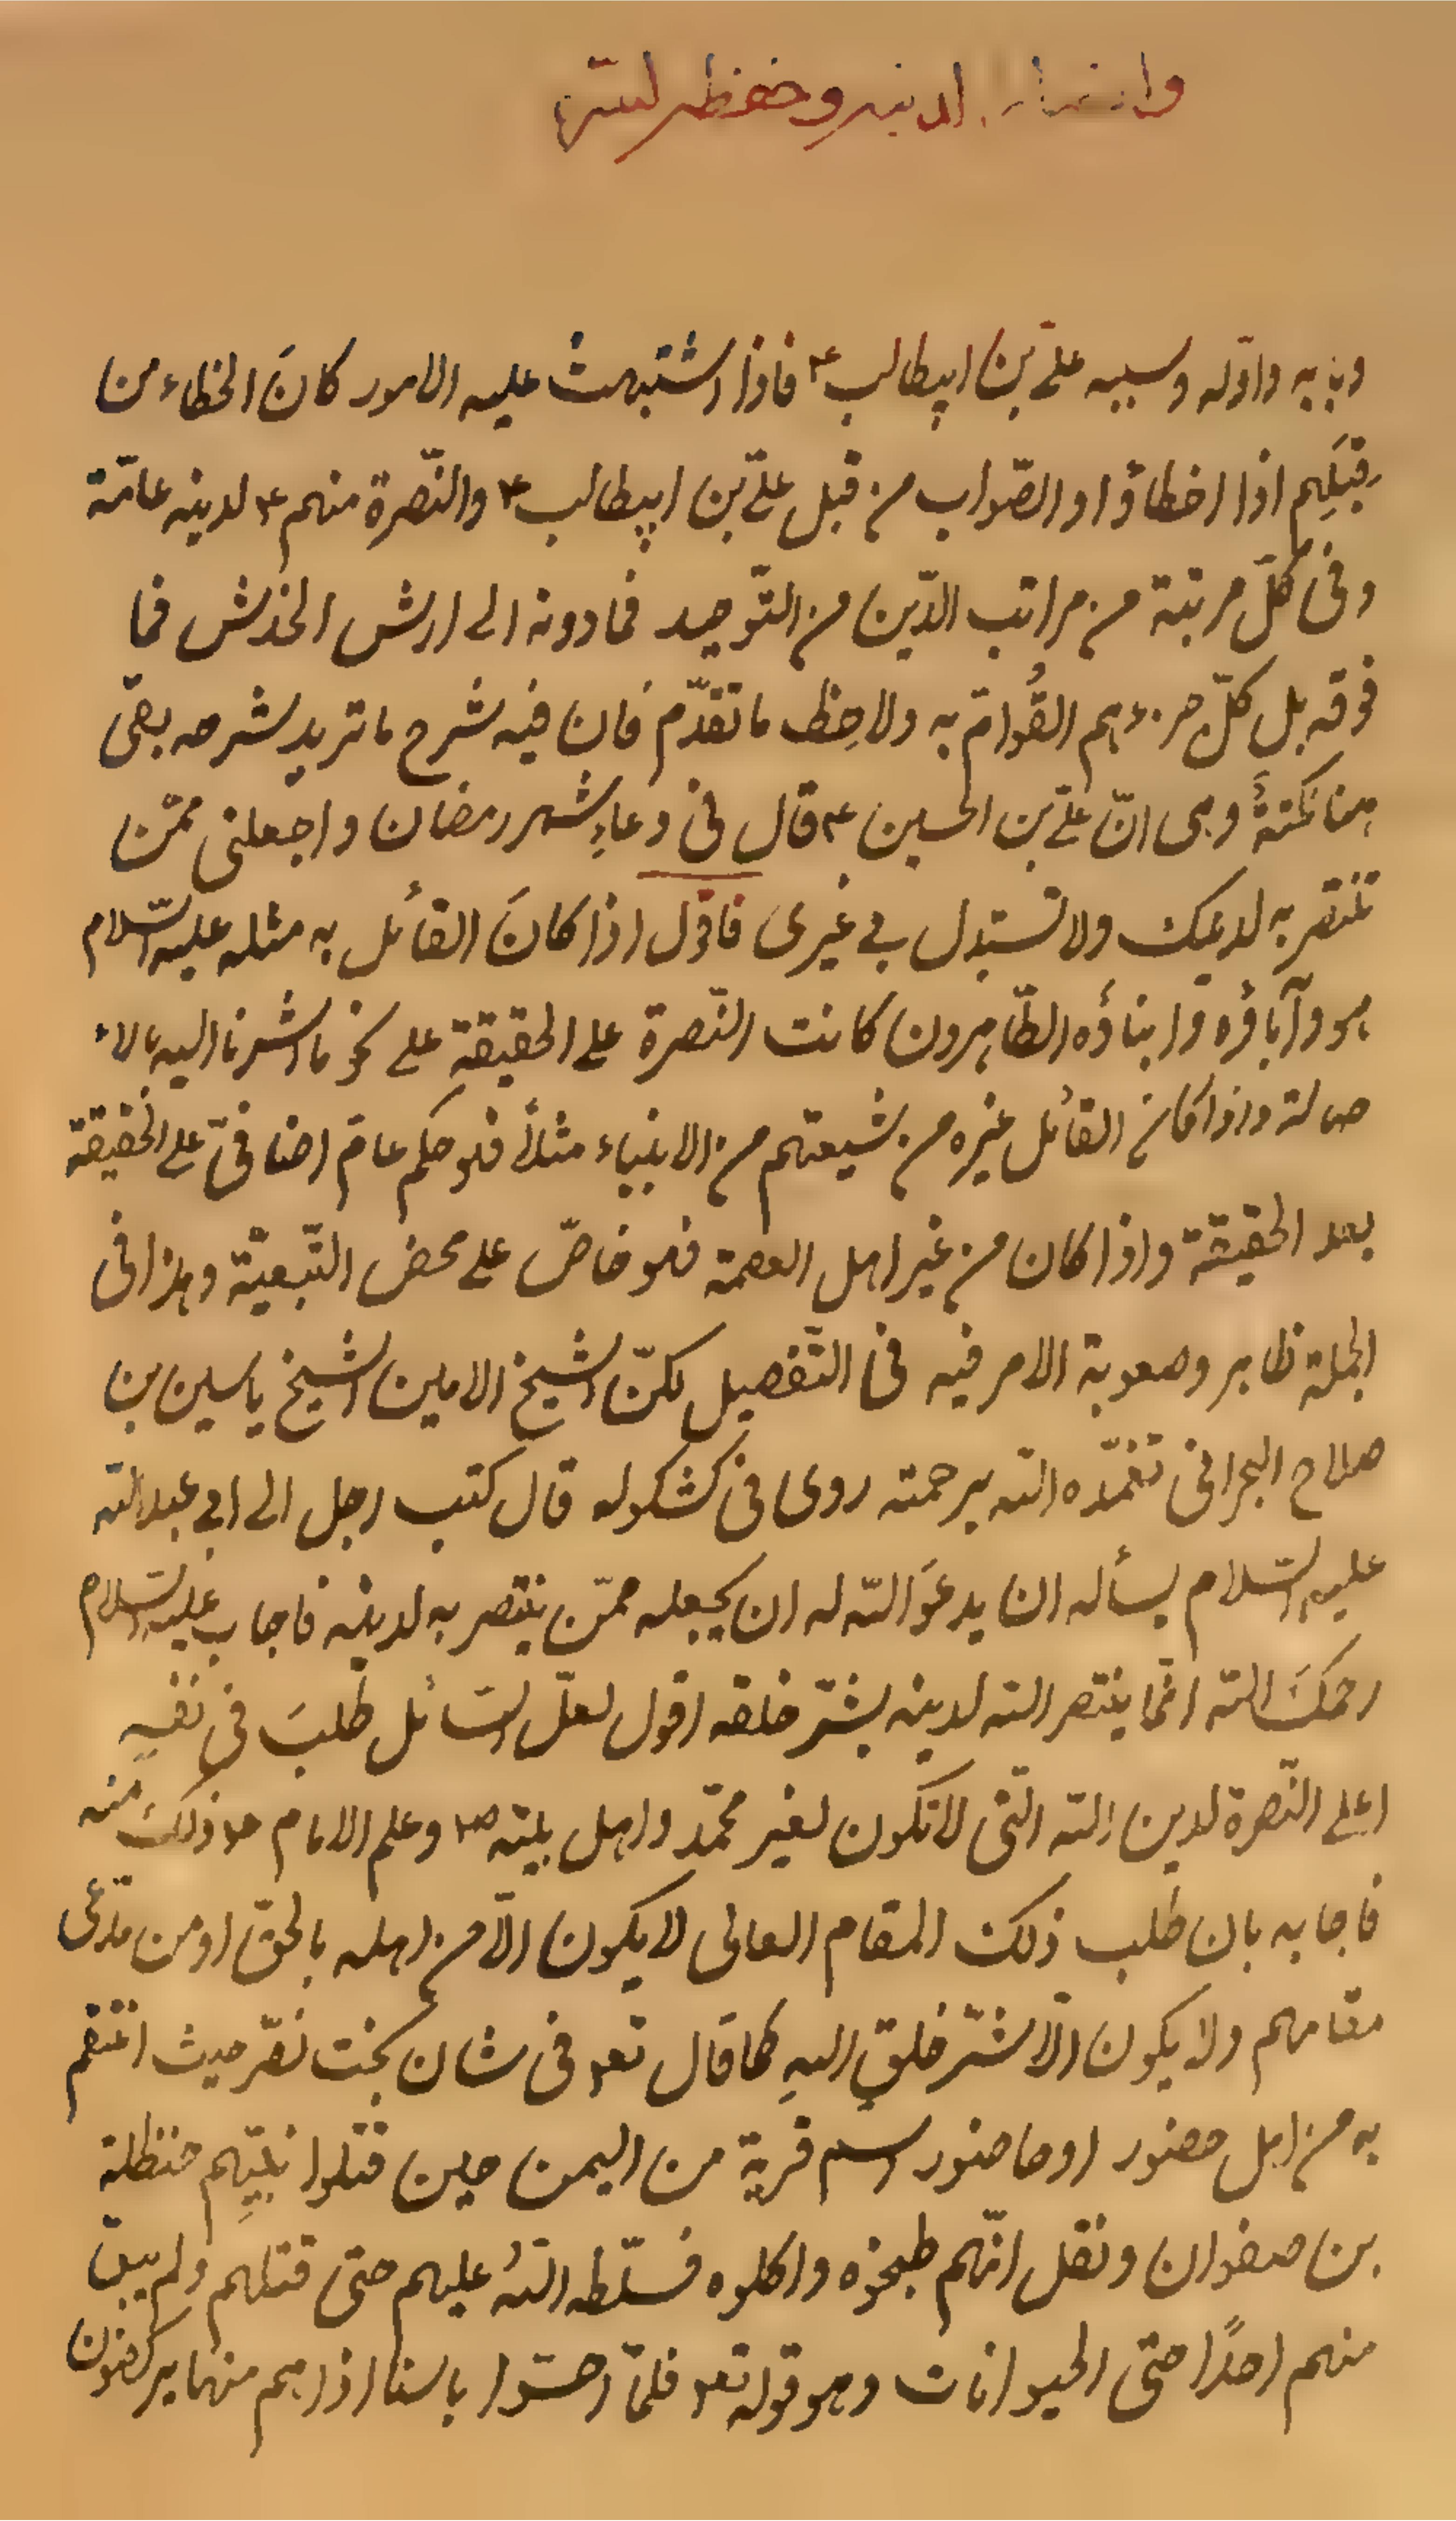 لدينه وحفظه لسرّه
وبابه واوّله وسببه علىّ بن ابيطالب ع٣ فاذا اشتبهت عليه الامور كانَ الخطاء من
قِبَلِهم اذا اخطاؤا والصّواب من قبل علىّ بن ابيطالب ع٣ والنّصرة منهم ع٣ لدينه عامّة
وفى كلّ مرتبة من مراتب الدّين من التّوحيد فمادونه الى ارش الخدش فما
فوقه بل كلّ جزء هم القُوام به ولاحِظ ماتقدّم فان فيه شرح ماتريد شرحه بقى
هنا نكتةٌ وهى انّ علىّ بن الحسين ع٣ قال فى دعاءِ شهر رمضان واجعلنى ممّن
تنتصر به لدينك ولا تستبدل بى غيرى فاقول اذا كانَ القائل به مثله عليه السّلام
هو وآباؤه وابناؤه الطّاهرون كانت النّصرة على الحقيقةِ على نحو مااشرنا اليه بالاء
صالة واذا كان القائل غيره من شيعتهم من الانبياء مثلاً فهو حكم عامّ اضافىّ على الحقيقة
بعد الحقيقة واذا كان من غير اهل العصمة فهو خاصّ على محض التّبعيّة وهذا فى
الجملة ظاهر وصعوبة الامر فيه فى التّفصيل لكنّ الشيخ الامين الشيخ ياسين بن
صلاح البحرانى تغمّده الله برحمته روى فى كشكوله قال كتب رجل الى ابى عبدالله
عليه السّلام يسأله ان يدعوَ الله له ان يجعله ممّن ينتصر به لدينه فاجاب عليه السّلام
رحمكَ الله انّما ينتصر الله لدينه بشرّ خلقه اقول لعلّ السّائل طلبَ فى نفسِهِ
اعلى النّصرة لدين الله الّتى لاتكون لغير محمّد واهل بيته ص٣ وعلم الامام ع٣ ذلك منه
فاجابه بان طلب ذلك المقام العالى لايكون الّا من اهله بالحقّ او من مدّعى
مقامهم ولا يكون الّا شرّ خلقِ اللهِ كما قال تعو فى شان بخت نصّر حيث انتقم
به من اهل حضور او حاضور اسم قرية من اليمن حين قتلوا نبيّهِم حنظلة
بن صفوان ونقل انّهم طبخوه واكلوه فسلّطه اللهُ عليهم حتى قتلهم ولم يبق
منهم احدًا حتى الحيوانات وهو قوله تعو فلمّا احسّوا باسنا اذا هم منها يركضون